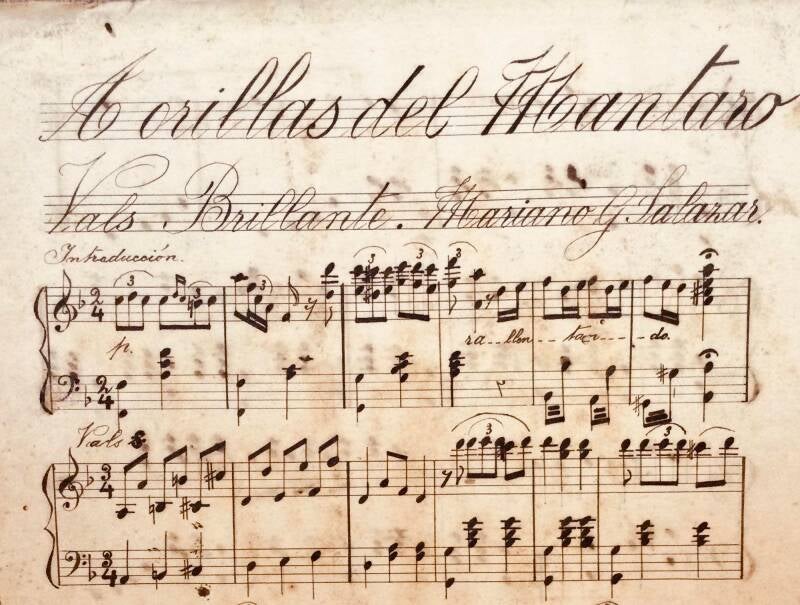 A orillas del Mantaro
Vals Brillante. Mariano G. Salazar.
Introducción.
3 3 3 3 3 3
2 4
p. ra--llen--tan---do.
2 4
Vals
3 4 3 3
3 4